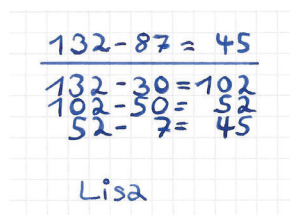 132 - 87 = 45
132 - 30 = 102
102 - 50 = 52
52 - 7 = 45
Lisa